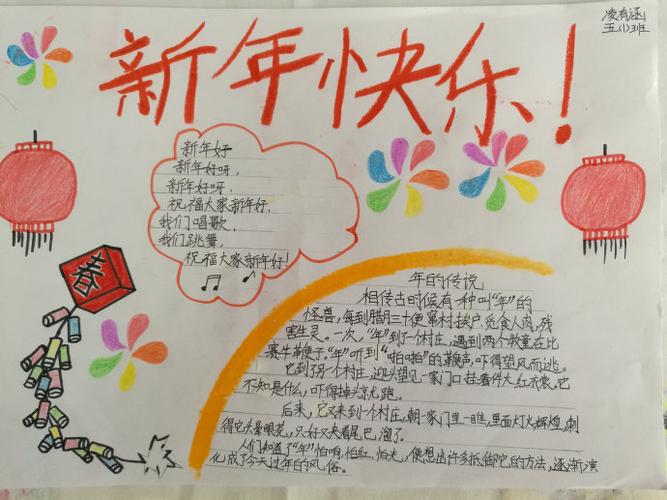 凌有涵
五(1)班
新年快乐!
新年好
新年好呀,
新年好呀,
祝福大家新年好.
我们唱歌,
我们跳舞,
祝福大家新年好!
春
年的传说
相传古时候有一种叫“年”的
怪兽,每到腊月三十便窜村挨户,觅食人肉,残
害生灵。一次,“年”到了个村庄,遇到两个牧童在比
赛牛鞭便子.“年”听到“啪啪啪”的鞭声,吓得望风而逃。
它到了另一个村庄,迎头望见一家门口挂着件大红衣裳。它
不知是什么,吓得掉头就跑。
后来,它又来到一个村庄,朝一家门里一瞧,里面灯火辉煌,刺
得它头晕眼花,只好又夹着尾巴溜了。
人们知道了“年”怕响,怕红,怕光,便想出许多抵御它的方法,逐渐演
化成了今天过年的风俗。